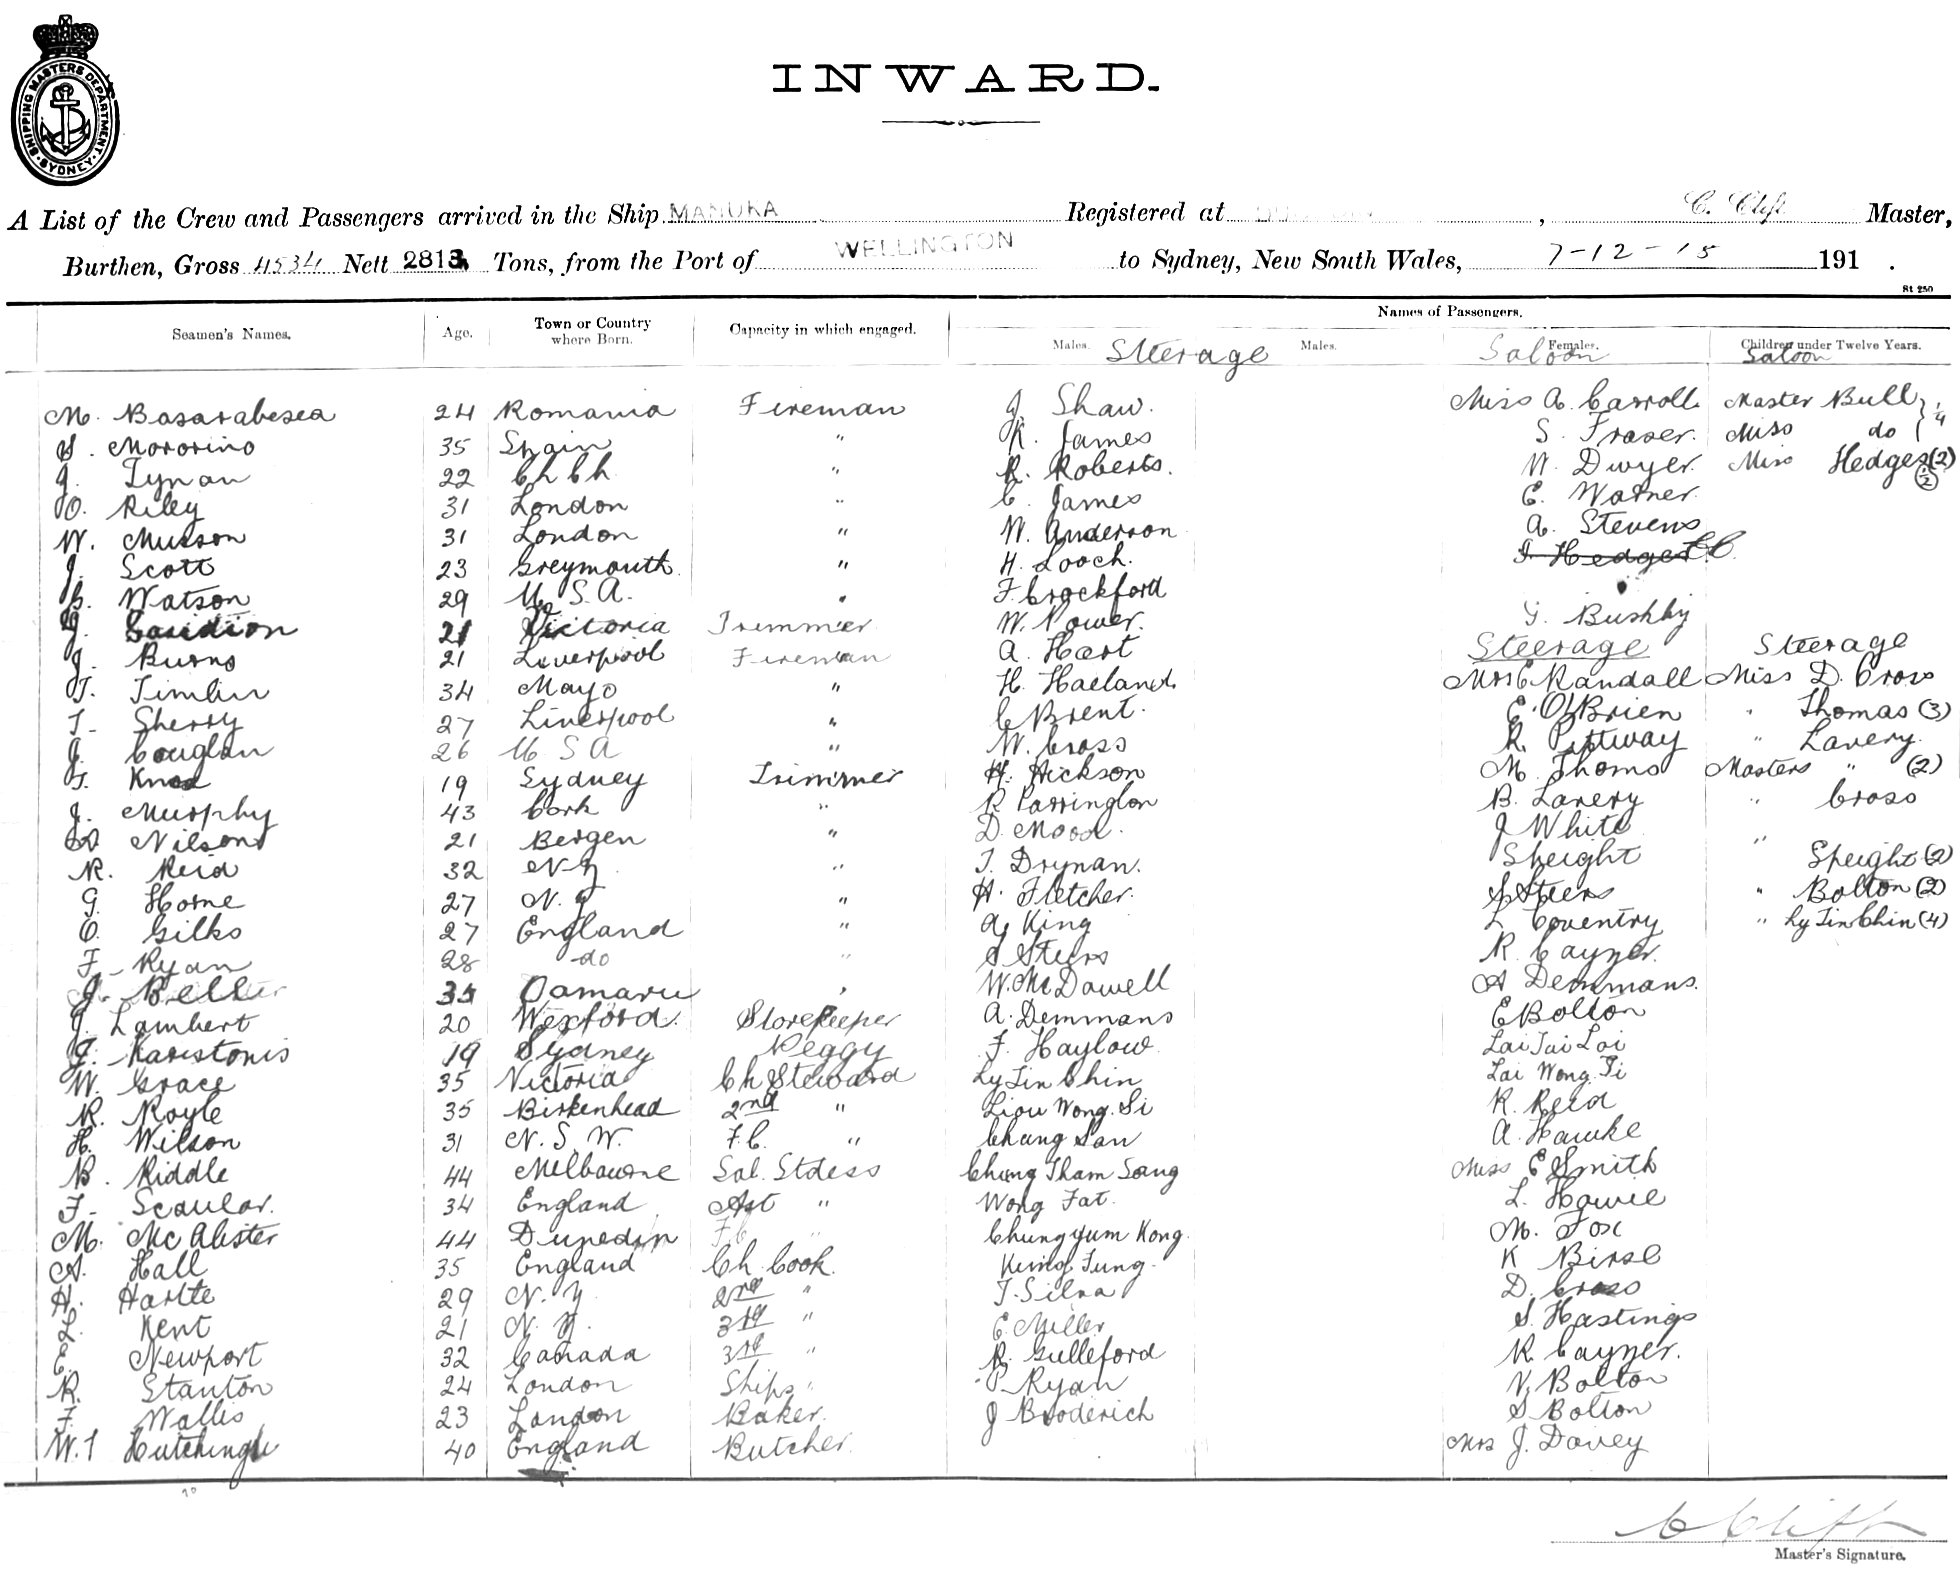 SHIPPING MASTERS DEPARTMENT · SYDNEY ·
INWARD.
A List of the Crew and Passengers arrived in the Ship MANUKA Registered at , C. Clift Master,
Burthen, Gross 4534 Nett 2813 Tons, from the Port of WELLINGTON to Sydney, New South Wales, 7-12-15 191 .
St 250
Seamen's Names. Age. Town or Country where Born. Capacity in which engaged. Names of Passengers.
Males. Steerage Males. Females. Saloon Children under Twelve Years. Saloon
M. Basarabesea 24 Romania Fireman J. Shaw. Miss A. Carroll Master Bull } 1/4
S. Mororino 35 Spain " K. James S. Fraser. Miss do
J. Tynan 22 Ch Ch " R. Roberts. N. Dwyer. Miss Hedges (2)
O. Riley 31 London " C. James E. Warner.
W. Musson 31 London " W. Anderson A. Stevens
J. Scott 23 Greymouth. " H. Looch. Hedges CC.
G. Watson 29 U. S. A. " F. Crockford
J. 21 Victoria Trimmer W. Power. G. Bushby
J. Burns 21 Liverpool Fireman A. Hart Steerage Steerage
T. Timlin 34 Mayo " H. Haeland. Mrs E Randall Miss D. Cross
T. Sherry 27 Liverpool " C Brent. E. O'Brien " Thomas (3)
J. Couglan 26 U S A " W. Cross R. Pittway " Lavery.
T. Knox 19 Sydney Trimmer H. Hickson M. Thoms Masters " (2)
J. Murphy 43 Cork " R Parrington B. Lavery " Cross
D. Nilson 21 Bergen " D. Mood. J White "
R. Reid 32 N-Z " T. Drynan. Speight Speight (2)
G. Horne 27 N. Z " H. Fletcher. S Steers " Bolton (2)
C. Gilks 27 England " A. King L Coventry " Ly Tin Chin (4)
F. Ryan 28 do " S Steers R. Cayzer.
J. 34 Oamaru " W. McDowell A Demmans.
J. Lambert 20 Wexford. Storekeeper A. Demmans E Bolton
J. Karistonis 19 Sydney Peggy F. Haylow. Lai Tai Loi
W. Grace 35 Victoria Ch Steward Ly Tin Chin Lai Wong Ti
R. Royle 35 Birkenhead 2nd " Liou Wong Si R. Reid
H. Wilson 31 N. S. W. F. C. " Chang San A. Hawke
B. Riddle 44 Melbourne Sal. Stdess Chung Tham Sang Miss E Smith
F. Scoular. 34 England Ast " Wong Fat. L. Howie
M. McAlister 44 Dunedin F C " Chung yum Kong M. Fox
A. Hall 35 England Ch. Cook. Kung Fung. K Birse
H. Hartle 29 N. Z. 2nd " T. Silva D. Cross
L. Kent 21 N. Z. 3rd " E. Miller S. Hastings
E. Newport 32 Canada 3rd " R. Gulleford R. Cayzer.
R. Stanton 24 London Ships " P. Ryan V. Bolton
F. Wallis 23 London Baker. J Broderich S Bolton
W. T Hutchings 40 England Butcher. Mrs J. Davey
C Clift
Master's Signature.